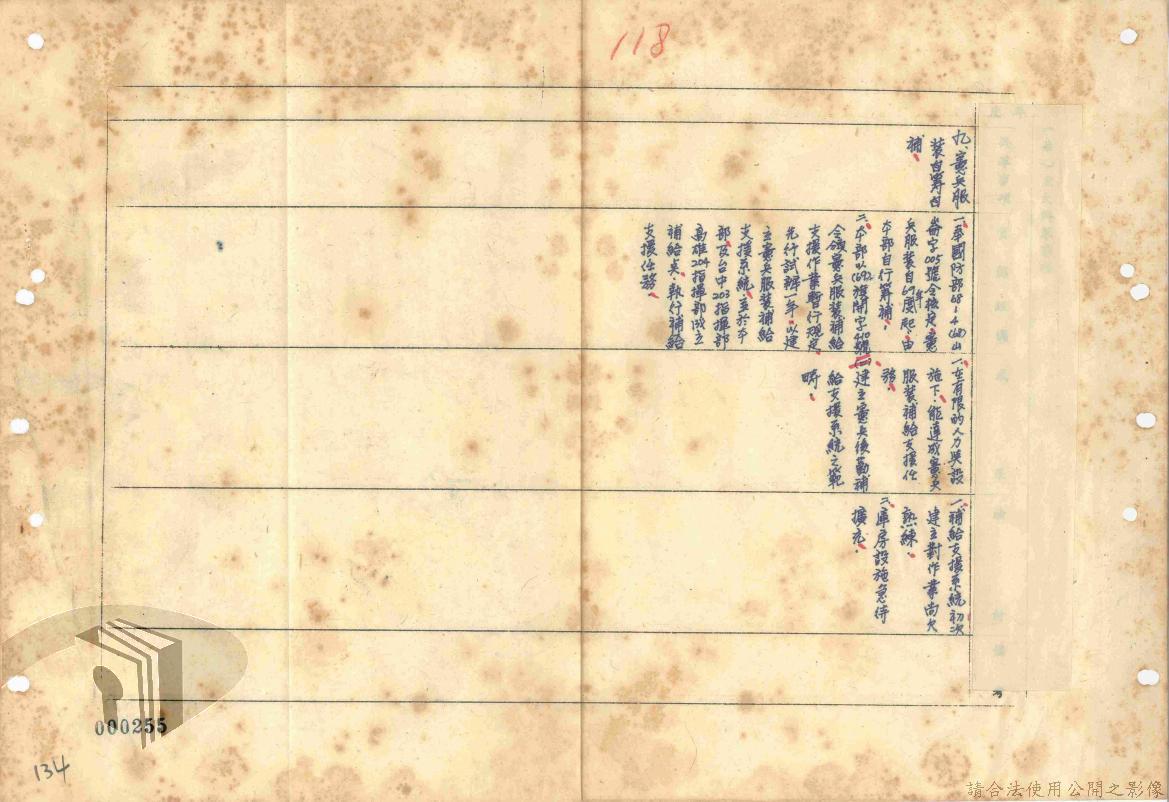 118
九、憲兵服
裝自籌自
補
一、奉國防部68.1.4(68)山
崙字005號令核定憲
兵服裝自69年度起由
本部自行籌補、
二、本部以(69)2旌開字410號
令頒憲兵服裝補給
支援作業暫行規定
先行試辦一年、以建
立憲兵服裝補給
支援系統、並於本
部及台中203指揮部
高雄204指揮部成立
補給點、執行補給
支援任務、
一、在有限的人力與設
施下、能達成憲兵
服裝補給支援任
務、
(二)建立憲兵後勤補
給支援系統之範
疇、
一、補給支援系統初次
建立對作業尚欠
熟練、
二、庫房設施急待
擴充、
000255
134
請合法使用公開之影像